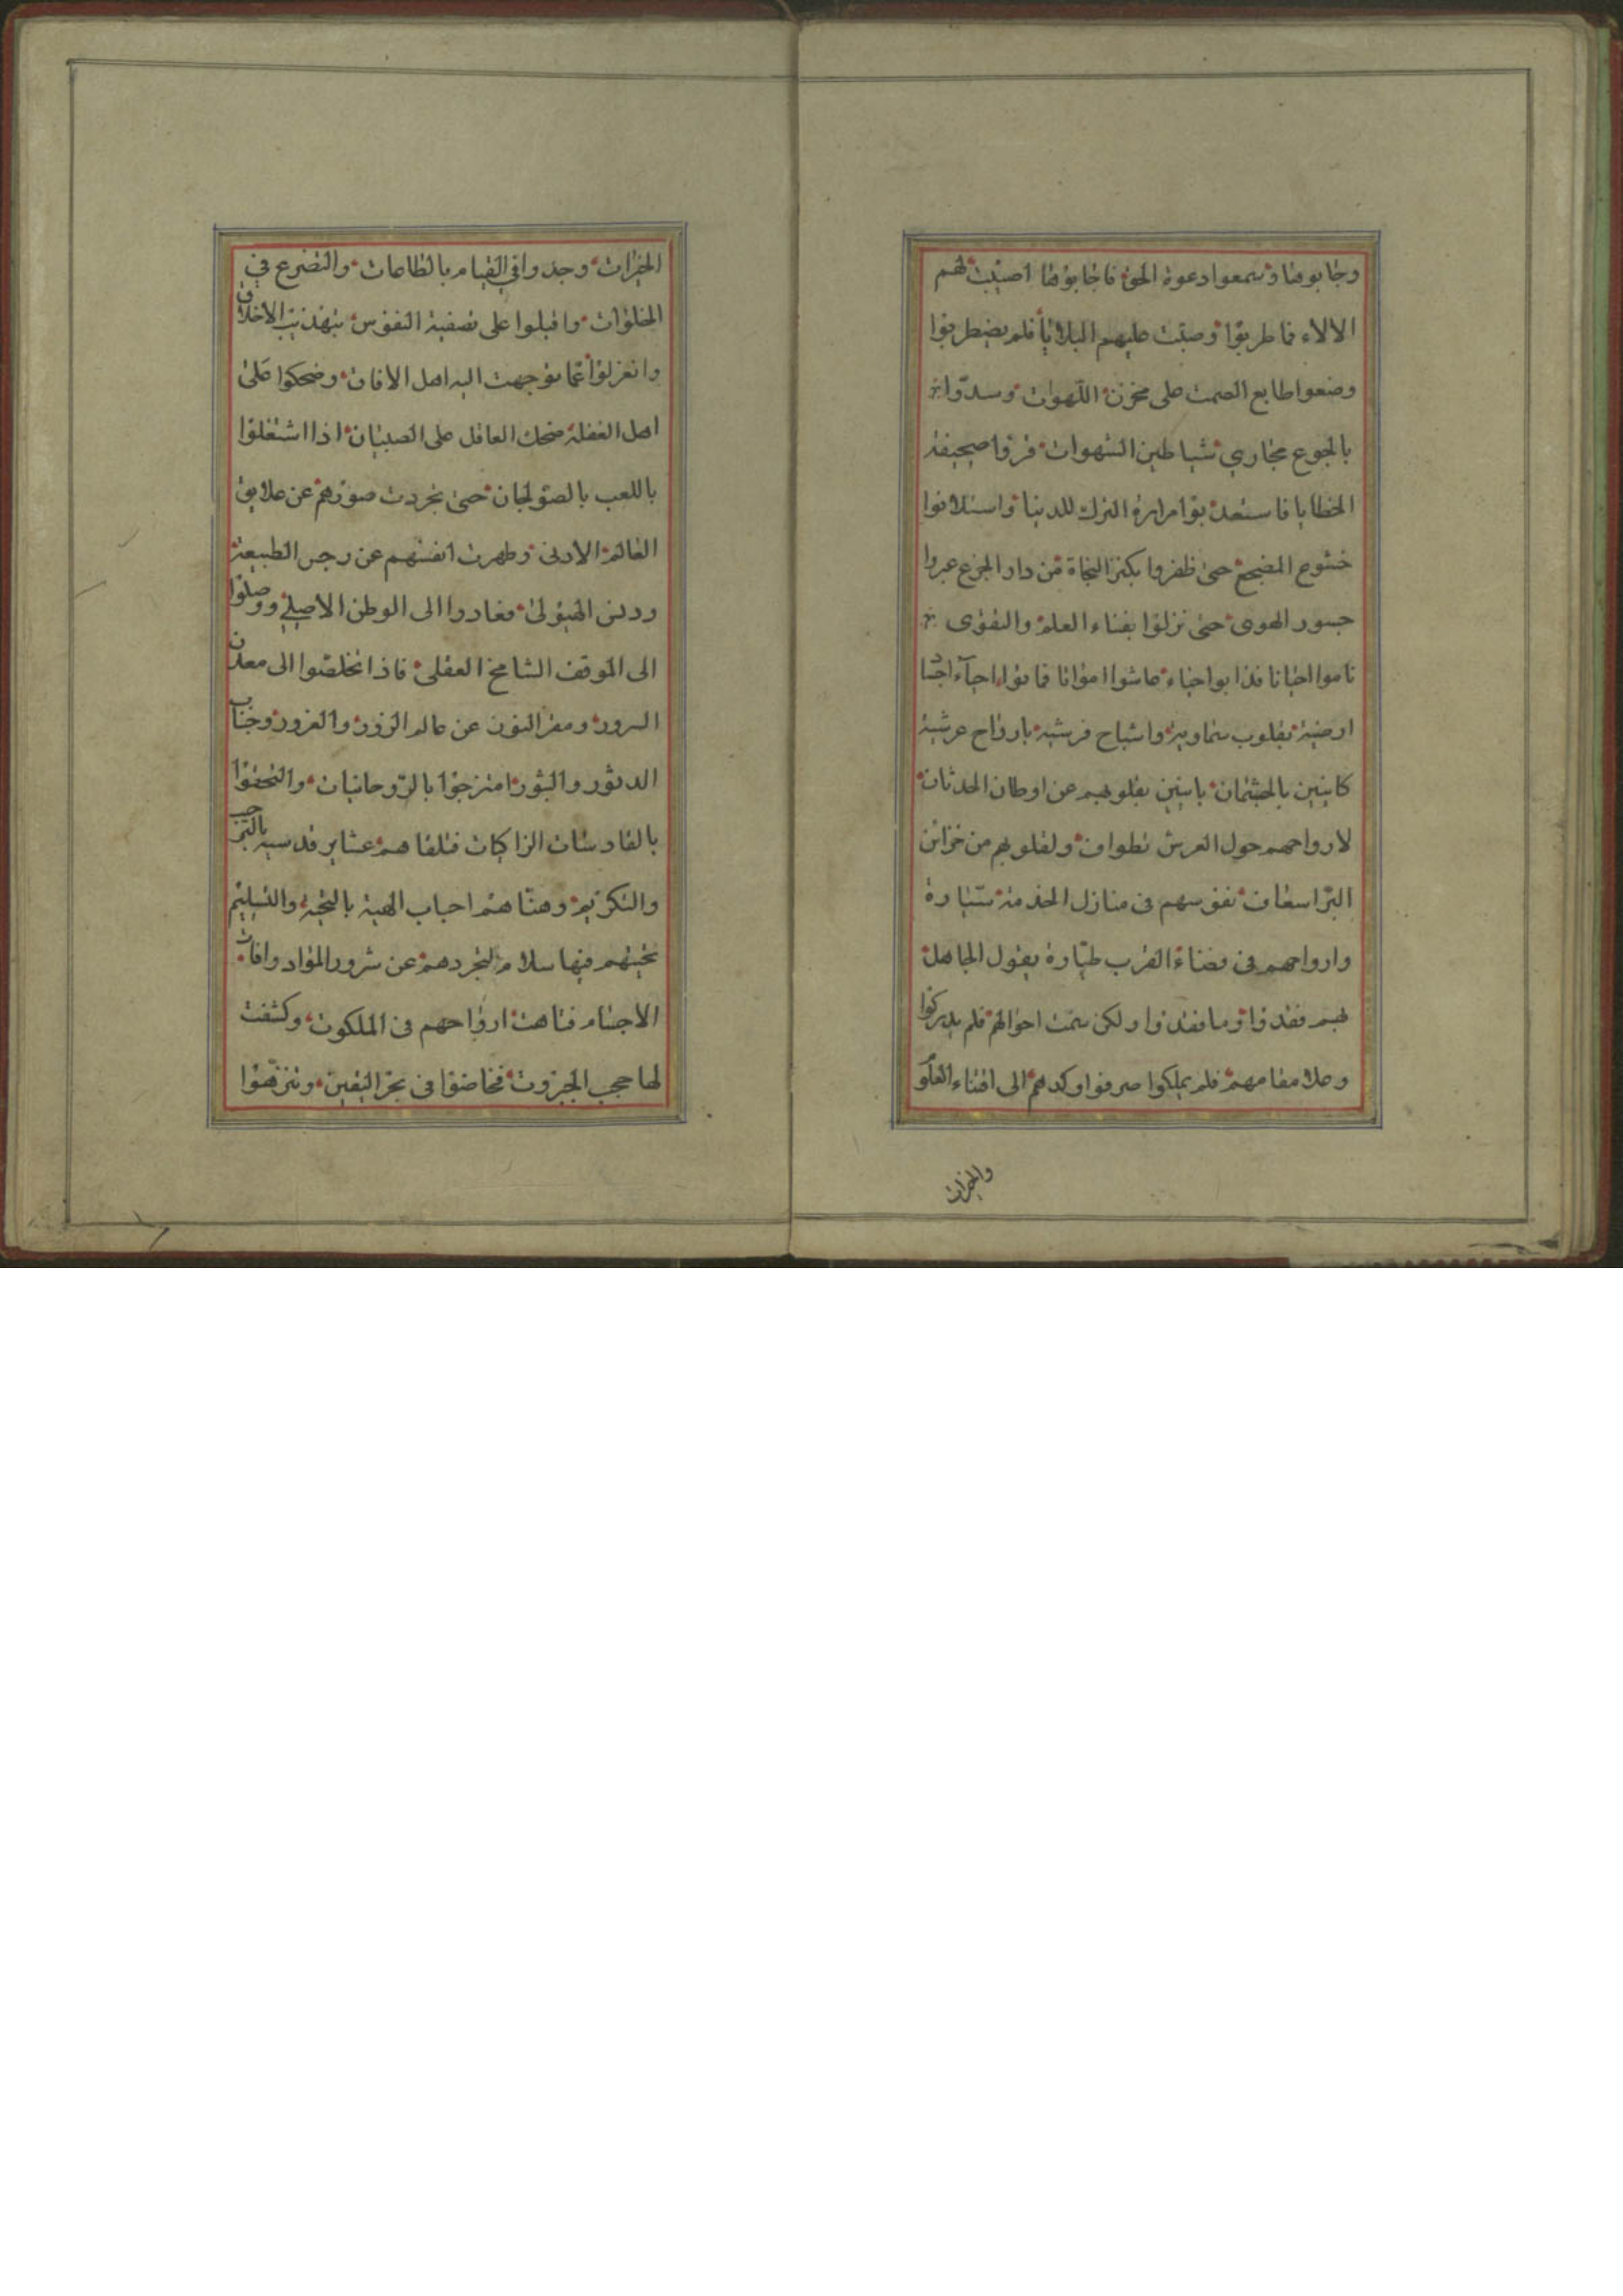 وجابوها وسمعوا دعوة الحق فاجابوها اصيبت لهم
الالاء فما طربوا وصبّت عليهم البلايا فلم يضطربوا
وضعوا طابع الصمت على مخزن اللّهوات وسدّوا
بالجوع مجاري شياطين الشهوات فرقوا صحيفة
الخطايا فاستعذبوا مرارة الترك للدنيا واستلانوا
خشوع المضجع حتى ظفروا بكنز النجاة من دار الجزع عبروا
جسور الهوى حتى نزلوا بفناء العلم والتقوى
ناموا احيانا فذابوا حياء عاشوا امواتا فماتوا احيآء اجسا
ارضية بقلوب سماوية واشباح فرشية بارواح عرشية
كاينين بالجثمان باينين بقلوبهم عن اوطان الحدثان
لارواحهم حول العرش تطواف ولقلوبهم من خزائن
البرّ اسعاف نفوسهم فى منازل الخدمة سيّارة
وارواحهم فى فضاء القرب طيّارة يقول الجاهل
بهم فقدوا وما فقدوا ولكن سمت احوالهم فلم يدركوا
وعلا مقامهم فلم يملكوا صرفوا وكدهم الى اقتناء العلو
والخيرات
الخيرات وجدوا في القيام بالطاعات والتضرع في
الخلوات واقبلوا على تصفية النفوس بتهذيب الاخلاق
وانعزلوا عما توجهت اليه اهل الافات وضحكوا على
اهل الغفلة ضحك العاقل على الصبيان اذا اشتغلوا
باللعب بالصولجان حتى تجردت صورهم عن علايق
العالم الادنى وطهرت انفسهم عن رجس الطبيعة
ودنس الهيولى فعادوا الى الوطن الاصلي ووصلوا
الى الموقف الشامخ العقلى فاذا تخلصوا الى معدن
السرور ومقر النور عن عالم الزور والغرور وجناب
الدثور والبثور امتزجوا بالرّوحانيات والتحفوا
بالقادسات الزاكيات فتلقاهم عشاير قدسية بالترحيب
والتكريم وهنّاهم احباب الهية بالتحية والتسليم
تحيتهم فيها سلام لتجردهم عن شرور المواد وافات
الاجسام فتاهت ارواحهم فى الملكوت وكشفت
لها حجب الجبروت فخاضوا فى بحر اليقين وتنزهوا